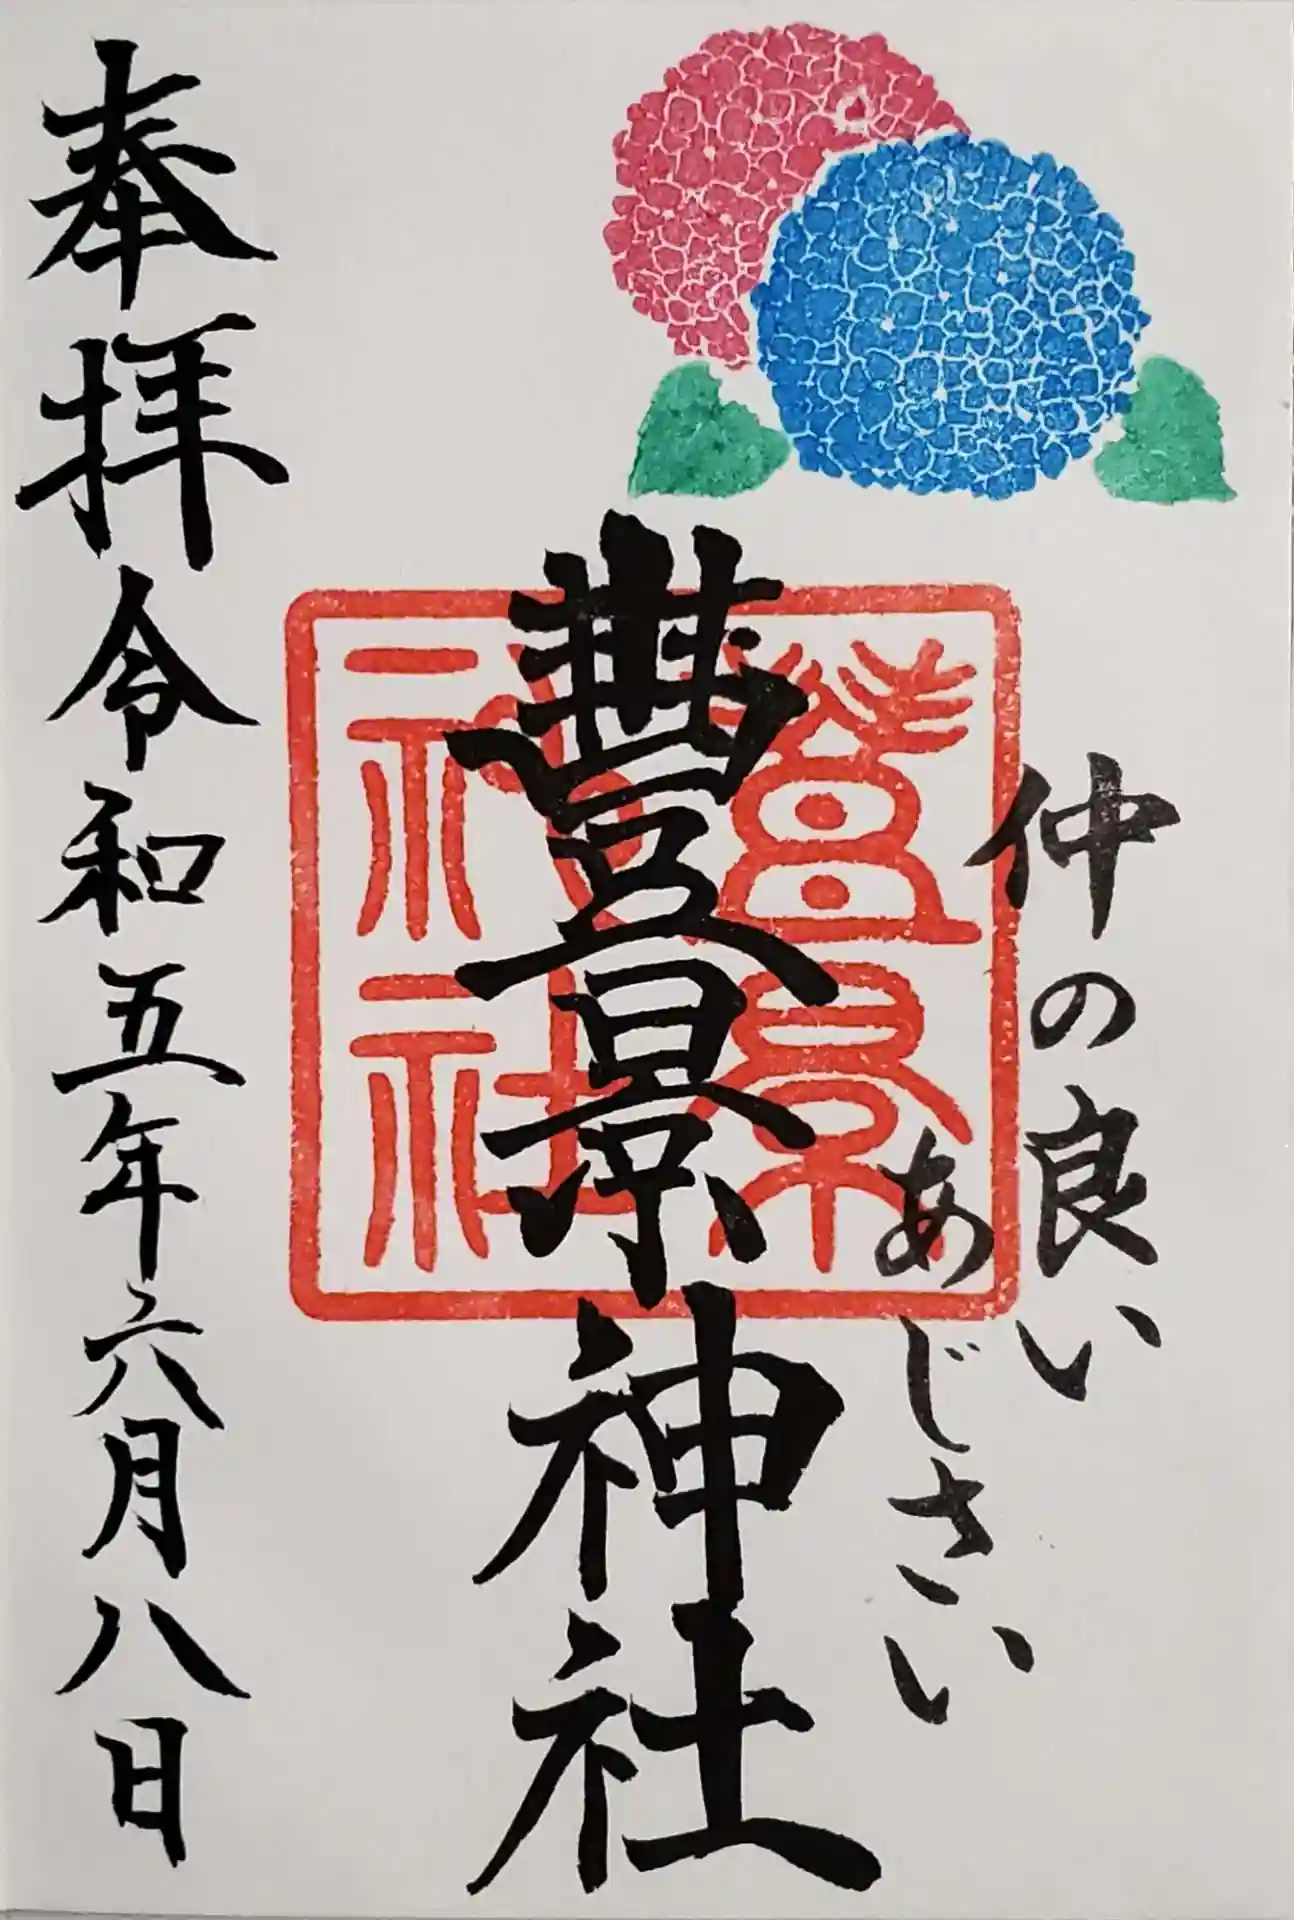 仲の良い
あじさい
豊景神社
豊景神社
奉拝 令和五年六月八日